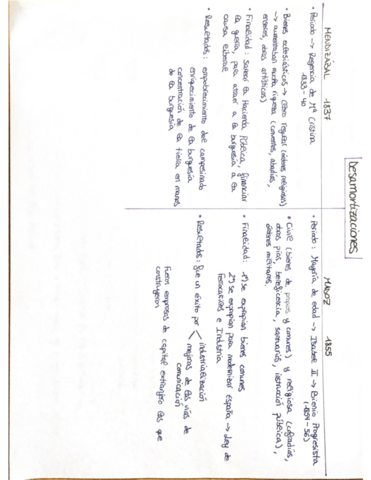 Desamortizaciones
MENDIZÁBAL -1837
• Periodo → Regencia de Mª Cristina
1833 - 40
• Bienes eclesiásticos → Clero Regular (órdenes religiosas)
→ aumentaban mucha riqueza (conventos, abadías,
obras artísticas)
• Finalidad: Sanear la Hacienda Pública, financiar
la guerra, para atraer a la burguesía a la
causa
• Resultados: empobrecimiento del campesinado
enriquecimiento de la burguesía
concentración de la tierra en manos
de la burguesía
MADOZ 1855
• Periodo: Mayoría de edad → Isabel II → Bienio Progresista
(1854 - 56)
• Civil (bienes de propios y comunes) y religiosa (cofradías,
obras pías, beneficencia, santuarios, instrucción pública),
órdenes militares.
• Finalidad: 1º se expropian bienes comunes
2º se expropian para modernizar españa → Ley de
Ferrocarriles e Industria
• Resultados: fue un éxito por industrialización
mejoras de las vías de
comunicación
Fueron empresas de capital extranjero las que
construyeron